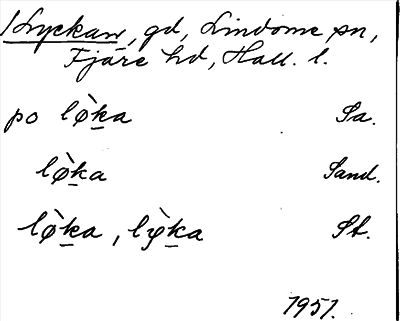 Lyckan, gd, Lindome sn,
Fjäre hd, Hall. l.
po lø̀ḵa Sa.
lø̀ḵa Sand.
lø̀ḵa, lỳḵa St.
1951.